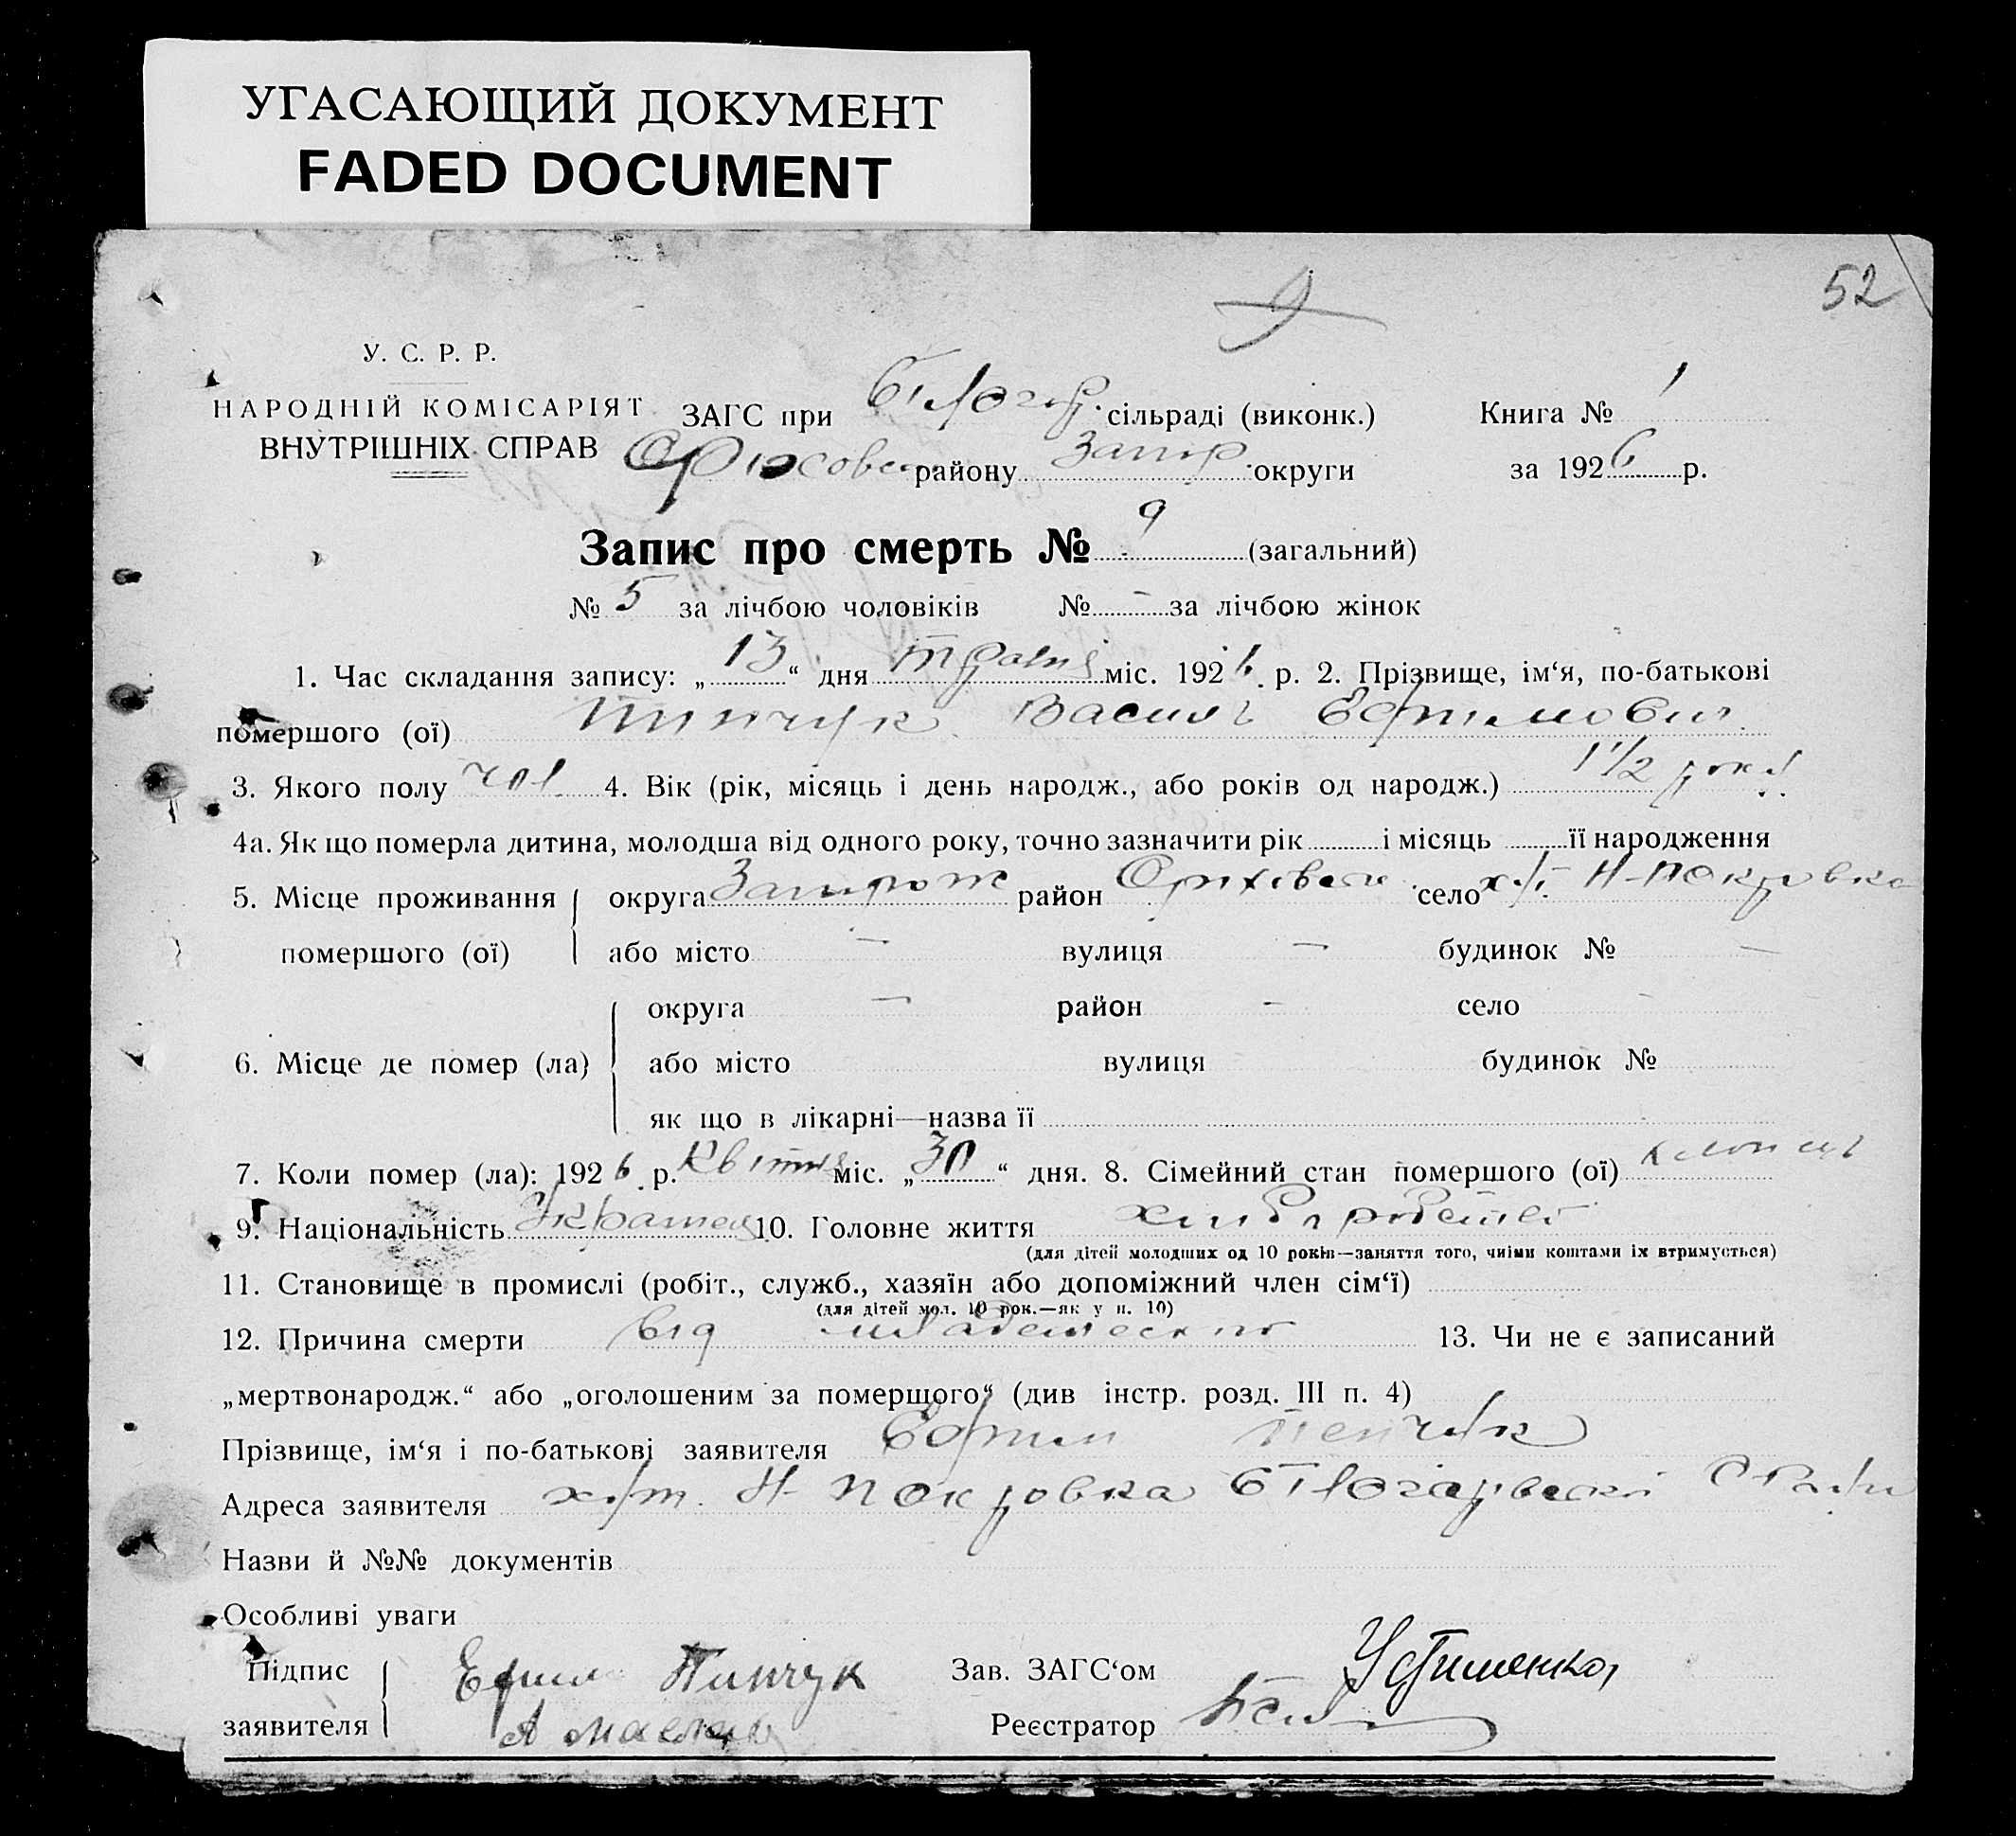 УГАСАЮЩИЙ ДОКУМЕНТ
FADED DOCUMENT
52
9
У. С. Р. Р.
НАРОДНІЙ КОМІСАРІЯТ
ВНУТРІШНІХ СПРАВ
ЗАГС при Білогір. сільраді (виконк.) Книга № 1
району Запор округи за 1926 р.
Запис про смерть № 9 (загальний)
№ 5 за лічбою чоловіків № - за лічбою жінок
1. Час складання запису: „13“ дня травня міс. 1926 р. 2. Прізвище, ім‘я, по-батькові
помершого (ої) Пинчук Василь Ефимович
3. Якого полу чол 4. Вік (рік, місяць і день народж., або років од народж.) 1 1/2 роки
4а. Як що померла дитина, молодша від одного року, точно зазначити рік і місяць її народження
5. Місце проживання округа Запорож район Оріхівськ село хут. Н-Покровка
помершого (ої) або місто — вулиця — будинок № —
округа — район — село -
6. Місце де помер (ла) або місто вулиця будинок №
як що в лікарні—назва її
7. Коли помер (ла): 1926 р. Квітня міс. „30“ дня. 8. Сімейний стан помершого (ої) хлопець
9. Національність Українец 10. Головне життя
(для дітей молодших од 10 років—заняття того, чиїми коштами їх втримується)
11. Становище в промислі (робіт., служб., хазяїн або допоміжний член сім‘ї)
(для дітей мол. 10 рок.—як у п. 10)
12. Причина смерти від младенческого 13. Чи не є записаний
„мертвонародж.“ або „оголошеним за померщого“ (див інстр. розд. III п. 4)
Прізвище, ім‘я і по-батькові заявителя Ефим Пенчук
Адреса заявителя хут. Н-Покровка Білогірвської С Ради
Назви й №№ документів
Особливі уваги
Підпис Ефим Пинчук Зав. ЗАГС‘ом Устименко
заявителя А Реєстратор